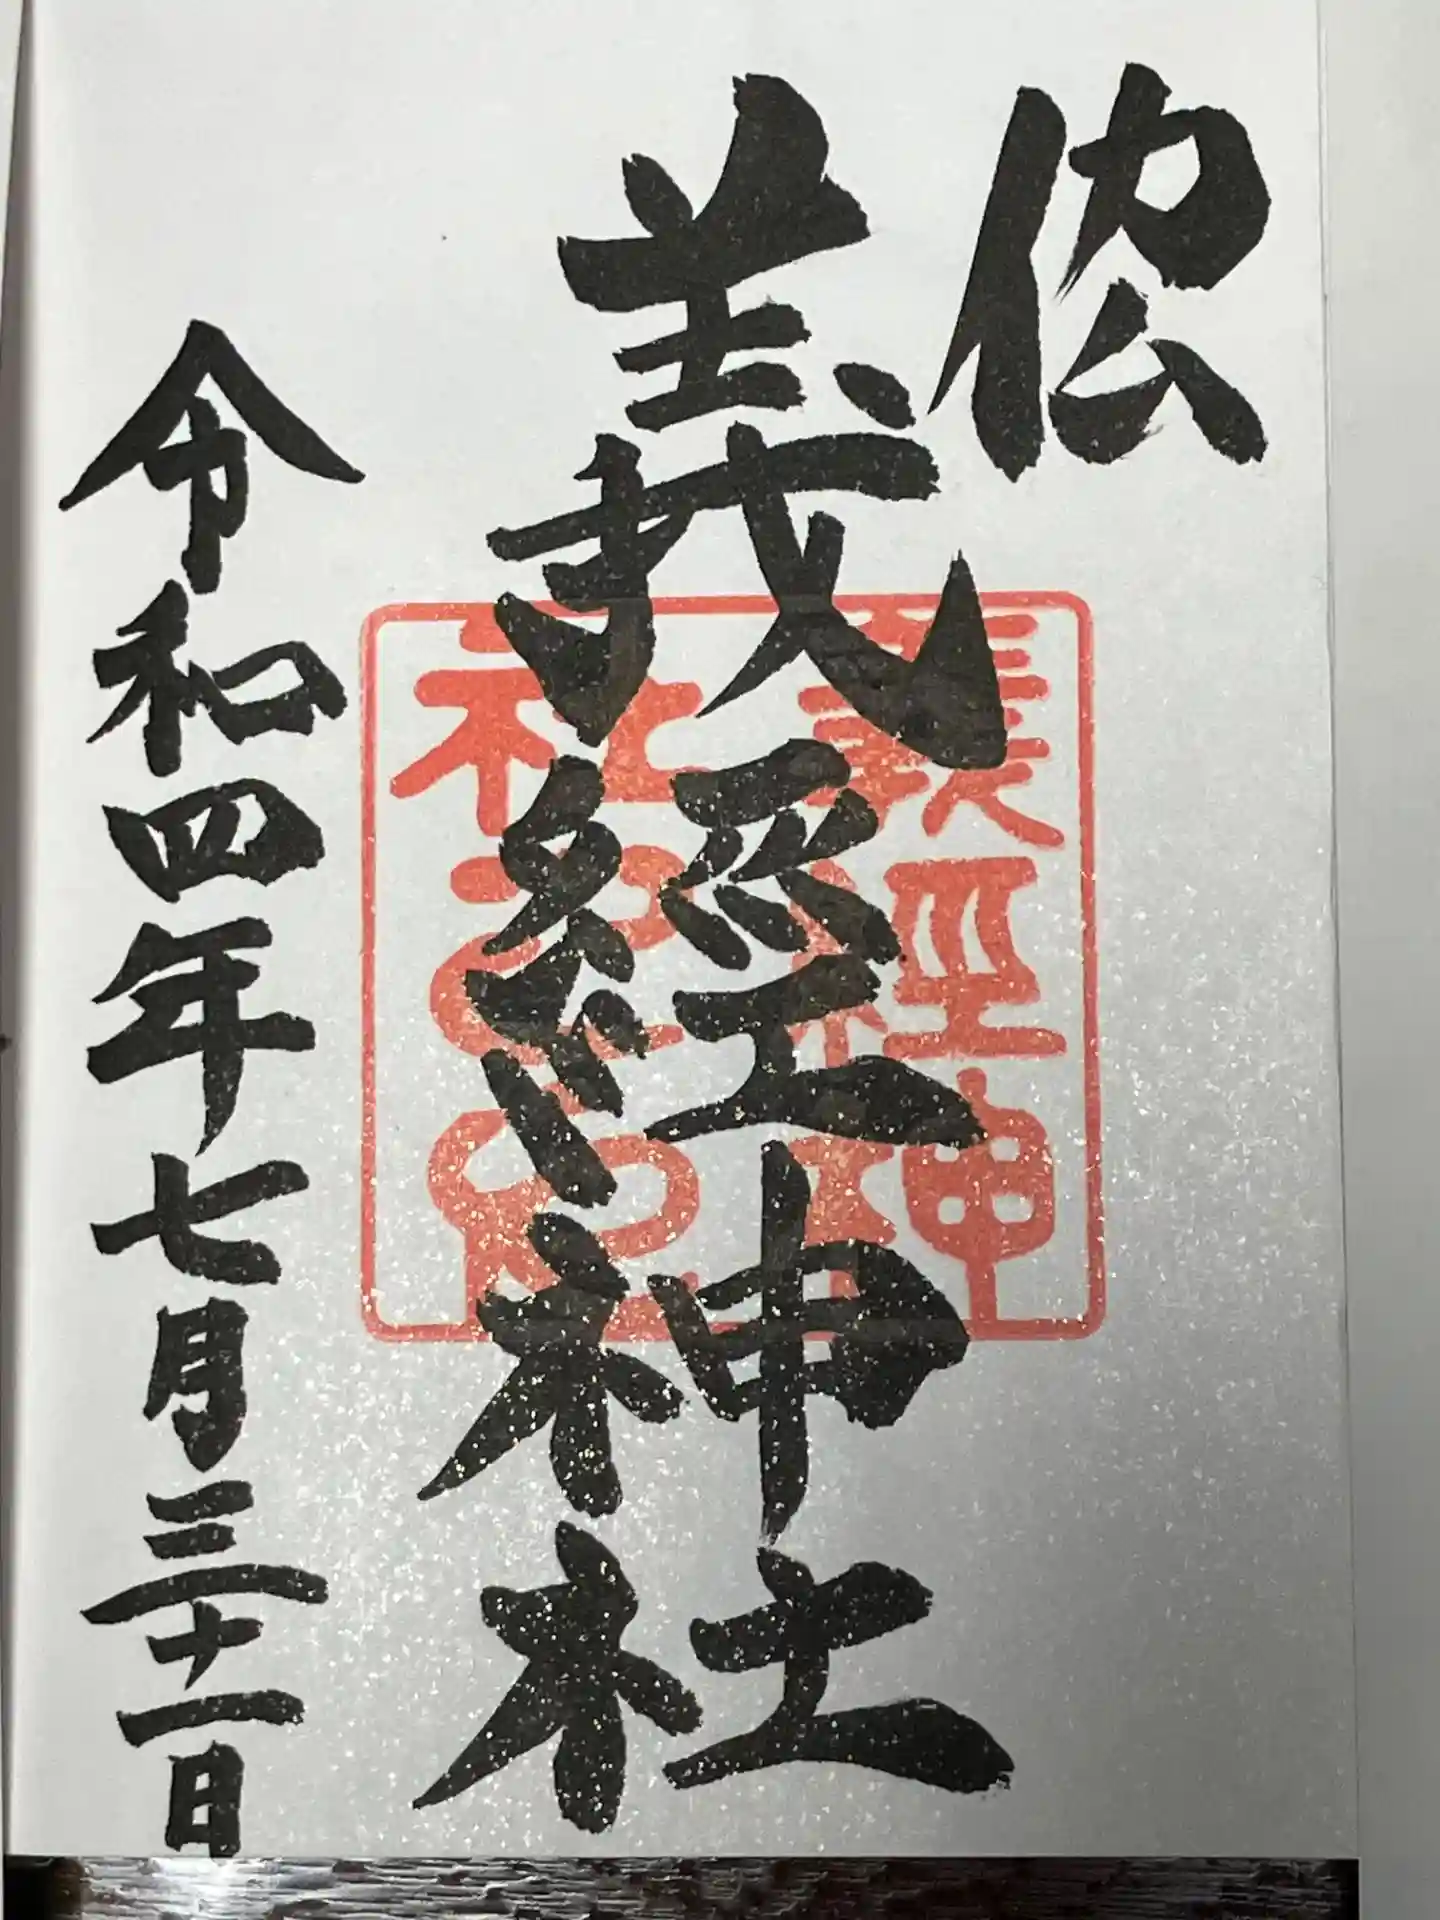 義經神社
令和四年七月三十一日
義經神
社